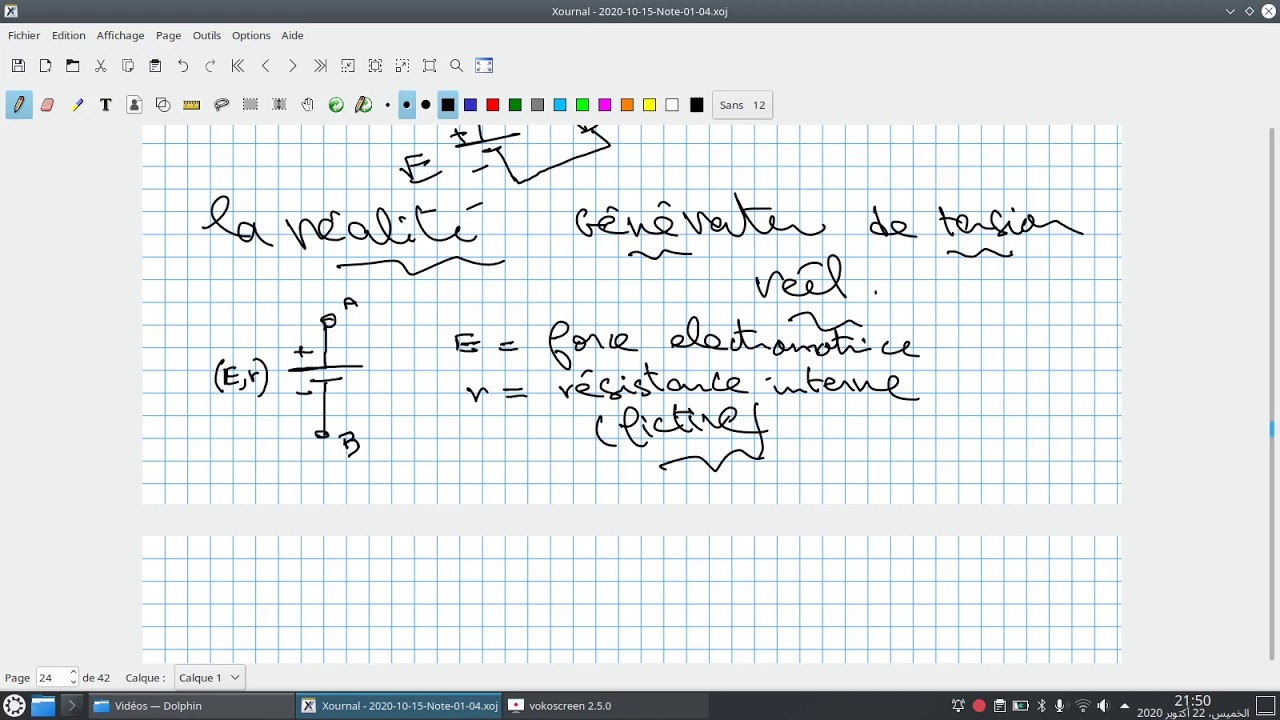 Xournal - 2020-10-15-Note-01-04.xoj
Fichier Edition Affichage Page Outils Options Aide
Sans 12
E + -
la réalité générateur de tension
réel.
A
+
(E,r)
-
B
E = force electromotrice
r = résistance interne
(fictive)
Page 24 de 42 Calque : Calque 1
Vidéos — Dolphin
Xournal - 2020-10-15-Note-01-04.xoj
vokoscreen 2.5.0
21:50
الخميس، 22 أكتوبر 2020